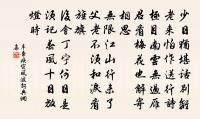 少日猶堪話別離
老來怕作送行詩
極目南雲無過雁
君看梅花也解寄
相思
無限江山行未了
父老不須和淚看
旌旗
後會丁寧何日是
須記春風十日放
燈時
辛棄疾定風波